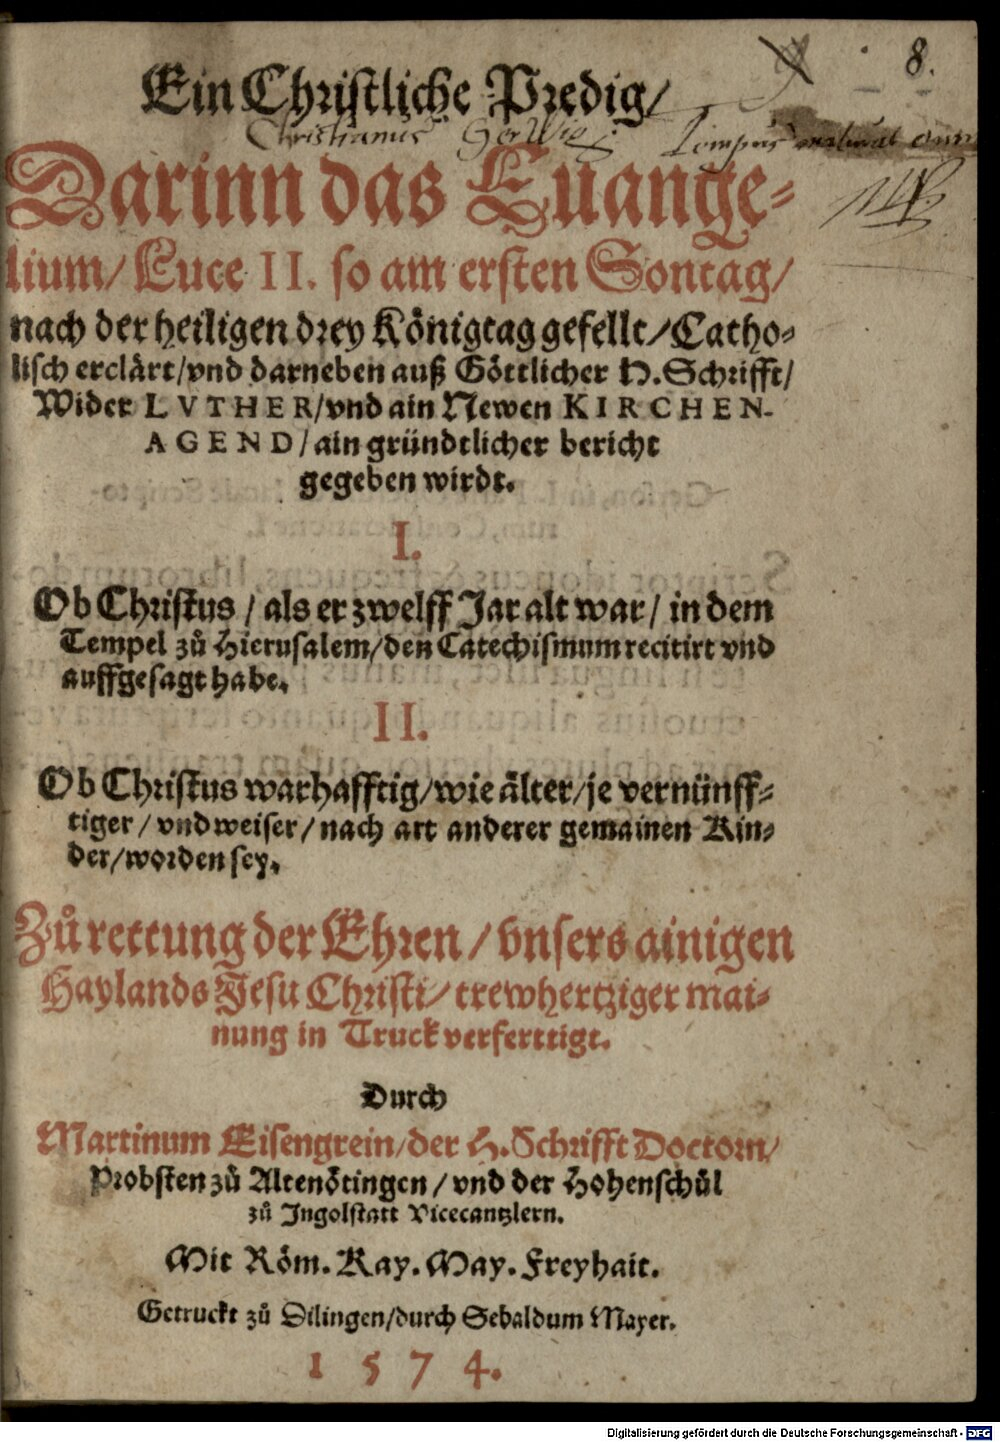 8.
Ein Christliche Predig/
Christianus Gerwig
Tempus
Darinn das Euange-
lium/ Luce II. so am ersten Sontag/
nach der heiligen drey Königtag gefellt/ Catho-
lisch erclärt/ vnd darneben auß Göttlicher H. Schrifft/
Wider LVTHER/ vnd ain Newen KIRCHEN-
AGEND/ ain gründtlicher bericht
gegeben wirdt.
I.
Ob Christus / als er zwelff Jar alt war/ in dem
Tempel zů Hierusalem/ den Catechismum recitirt vnd
auffgesagt habe.
II.
Ob Christus warhafftig/ wie älter/ je vernünff-
tiger / vnd weiser / nach art anderer gemainen Kin-
der/ worden sey.
Zů rettung der Ehren / vnsers ainigen
Haylands Jesu Christi/ trewhertziger mai-
nung in Truck verferttigt.
Durch
Martinum Eisengrein/ der H. Schrifft Doctorn/
Probsten zů Altenötingen / vnd der Hohenschůl
zů Ingolstatt Vicecantzlern.
Mit Röm. Kay. May. Freyhait.
Getruckt zů Dilingen/ durch Sebaldum Mayer.
1574.
Digitalisierung gefördert durch die Deutsche Forschungsgemeinschaft - DFG